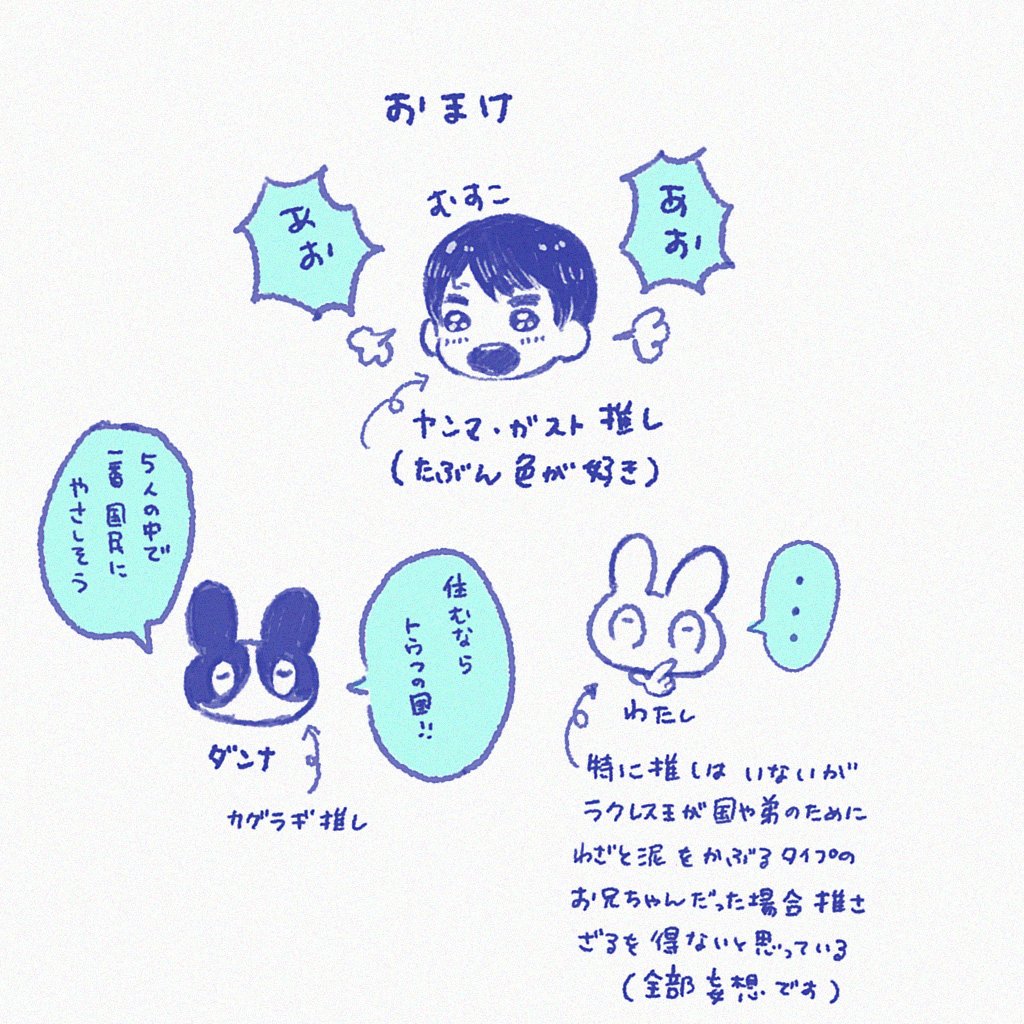 おまけ
あお
むすこ
あお
ヤンマ・ガスト推し
(たぶん色が好き)
5人の中で
一番国民に
やさしそう
住むなら
トウフの国!!
ダンナ
カグラギ推し
・・・
わたし
特に推しはいないが
ラクレス王が国や弟のために
わざと泥をかぶるタイプの
お兄ちゃんだった場合推さ
ざるを得ないと思っている
(全部妄想です)